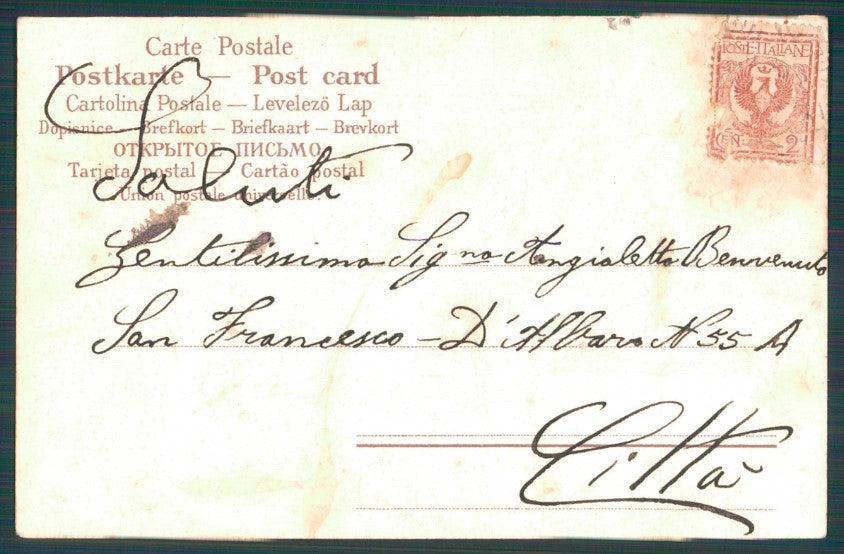 Carte Postale
Postkarte — Post card
Cartolina Postale — Levelező Lap
Dopisnice — Brefkort — Briefkaart — Brevkort
ОТКРЫТОЕ ПИСЬМО
Tarjeta postal — Cartão postal
Union postale universelle.
POSTE·ITALIANE
CEN. 2
Saluti
Gentilissima Signa Angioletta Benvenuto
San Francesco – D'Albaro N 55 A
Città